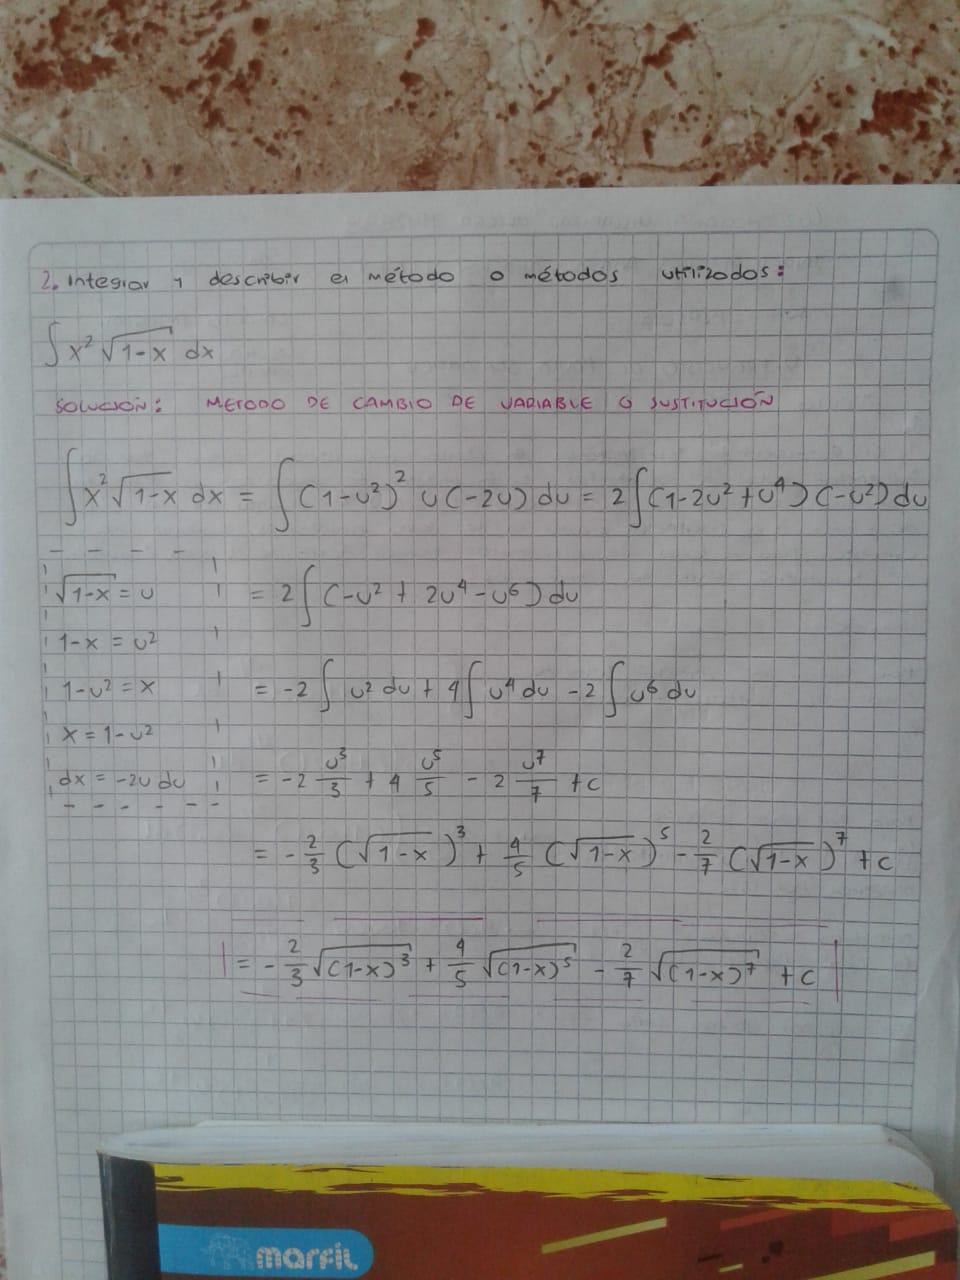 2. Integrar y describir el método o métodos utilizados:
∫ x² √(1-x) dx
SOLUCIÓN: METODO DE CAMBIO DE VARIABLE O SUSTITUCIÓN
∫ x² √(1-x) dx = ∫ (1-u²)² u (-2u) du = 2 ∫ (1-2u²+u⁴) (-u²) du
√(1-x) = u
= 2 ∫ (-u² + 2u⁴ - u⁶) du
1-x = u²
1-u² = x
= -2 ∫ u² du + 4 ∫ u⁴ du - 2 ∫ u⁶ du
x = 1-u²
dx = -2u du
= -2 u³/3 + 4 u⁵/5 - 2 u⁷/7 + c
= - 2/3 (√(1-x))³ + 4/5 (√(1-x))⁵ - 2/7 (√(1-x))⁷ + c
= - 2/3 √((1-x)³) + 4/5 √((1-x)⁵) - 2/7 √((1-x)⁷) + c
marfil